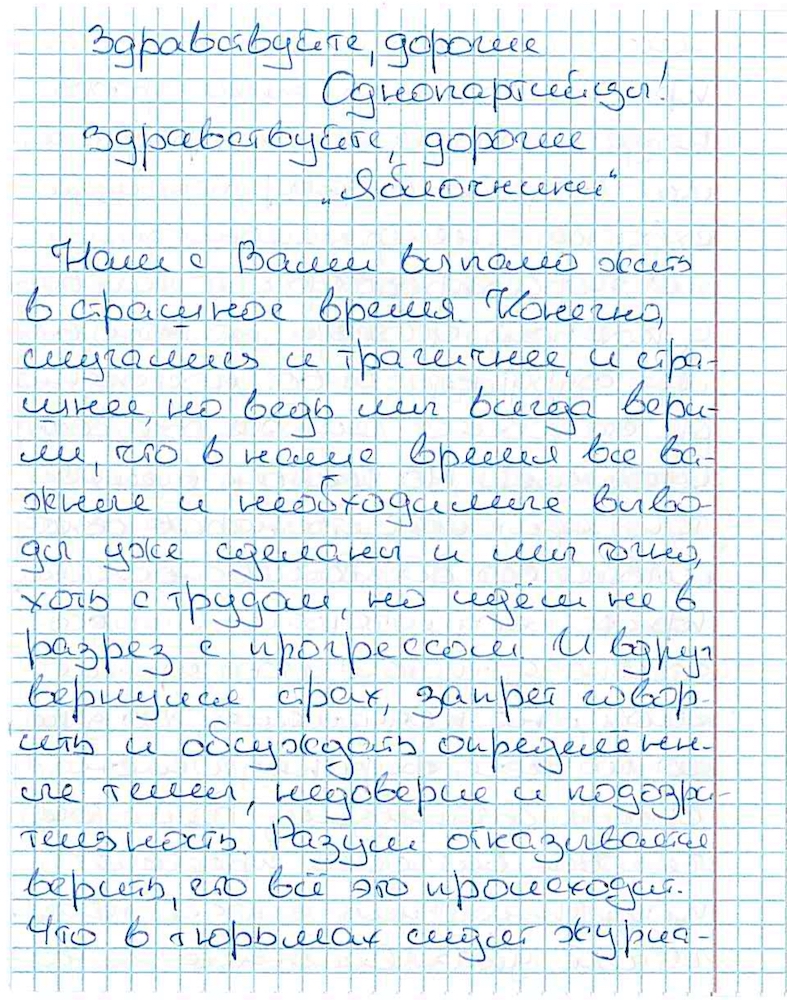 Здравствуйте, дорогие
Однопартийцы!
Здравствуйте, дорогие
„Яблочники"
Нам с Вами выпало жить
в страшное время. Конечно,
случалися и трагичнее, и стра-
шнее, но ведь мы всегда вери-
ли, что в наше время все ва-
жные и необходимые выво-
ды уже сделаны и мы точно,
хоть с трудом, но идём не в
разрез с прогрессом. И вдруг
вернулся страх, запрет говор-
ить и обсуждать определенн-
ые темы, недоверие и подозри-
тельность. Разум отказывается
верить, что всё это происходит.
Что в тюрьмах сидят журна-